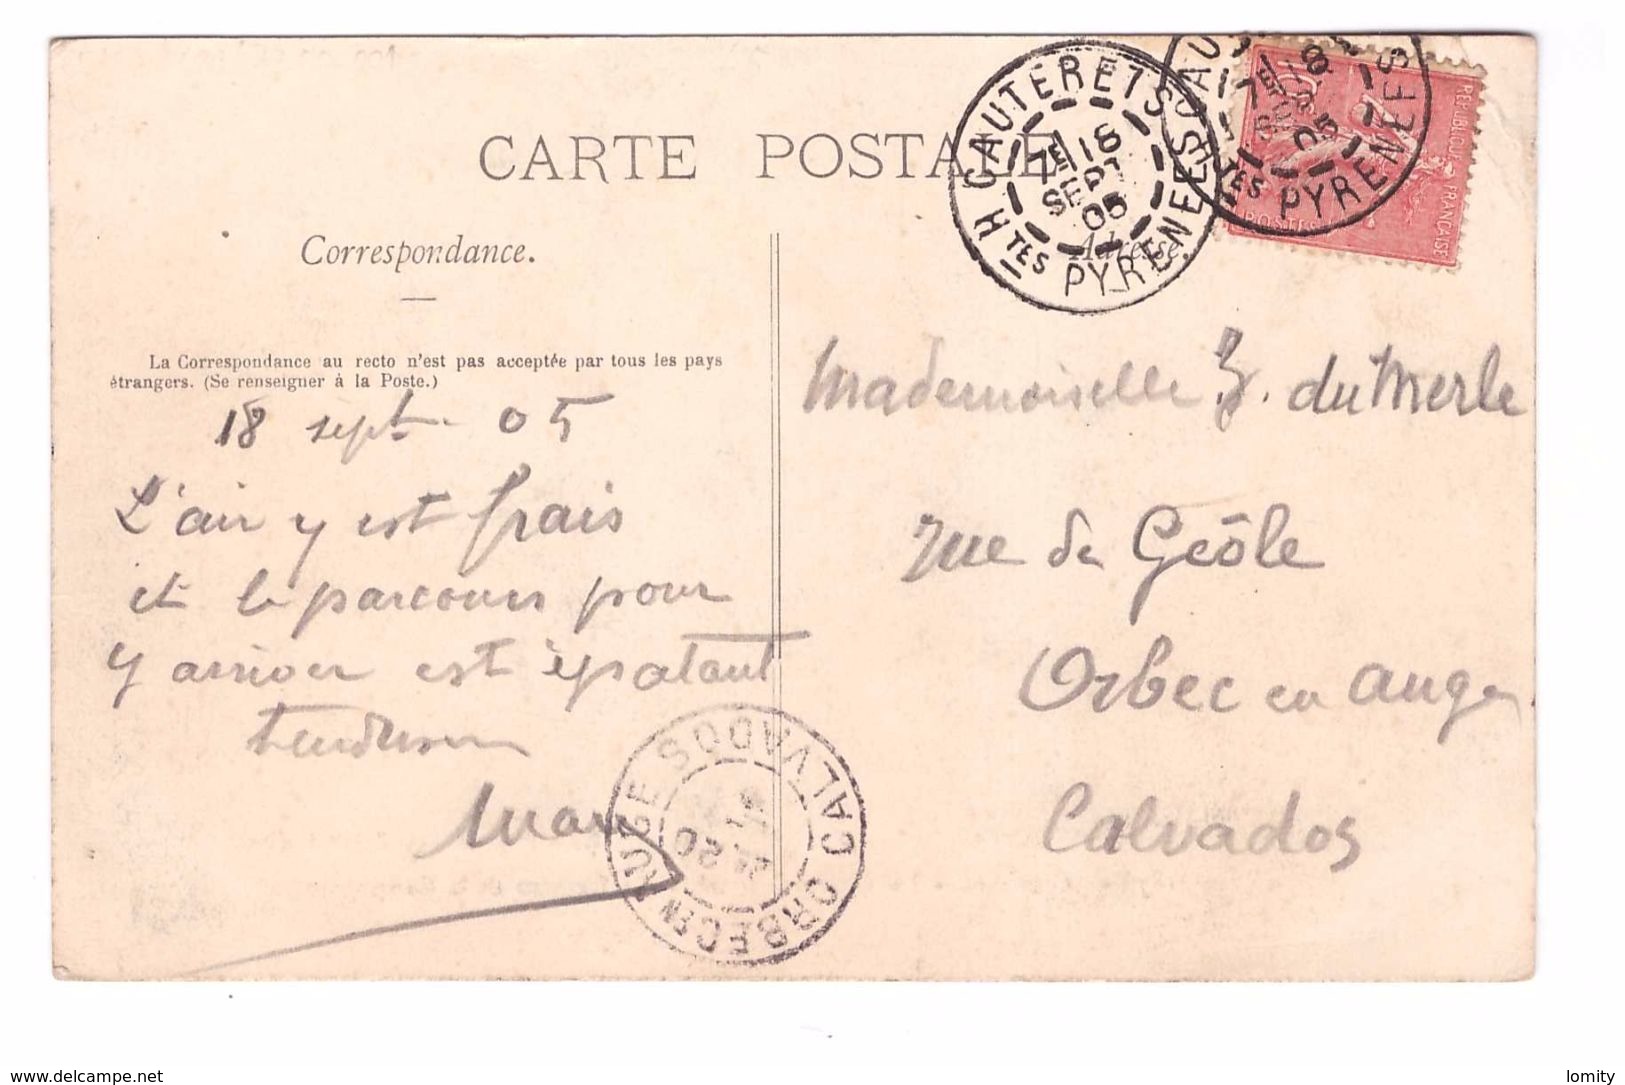 CARTE POSTALE
Correspondance.
La Correspondance au recto n'est pas acceptée par tous les pays
étrangers. (Se renseigner à la Poste.)
18 sept. 05
L'air y est frais
et le parcours pour
y arriver est épatant
CAUTERETS
7E 18
SEPT
05
HTES PYRENEES
7E 18
05
HTES PYRENEES
REPUBLIQUE FRANCAISE
POSTES
Adresse.
Mademoiselle du Merle
rue de Geôle
Orbec en auge
Calvados
ORBEC EN AUGE CALVADOS
www.delcampe.net
lomity